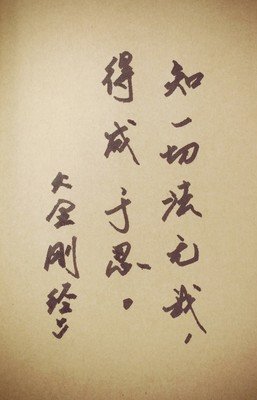 知一切法无我，
得成于忍。
《金刚经》